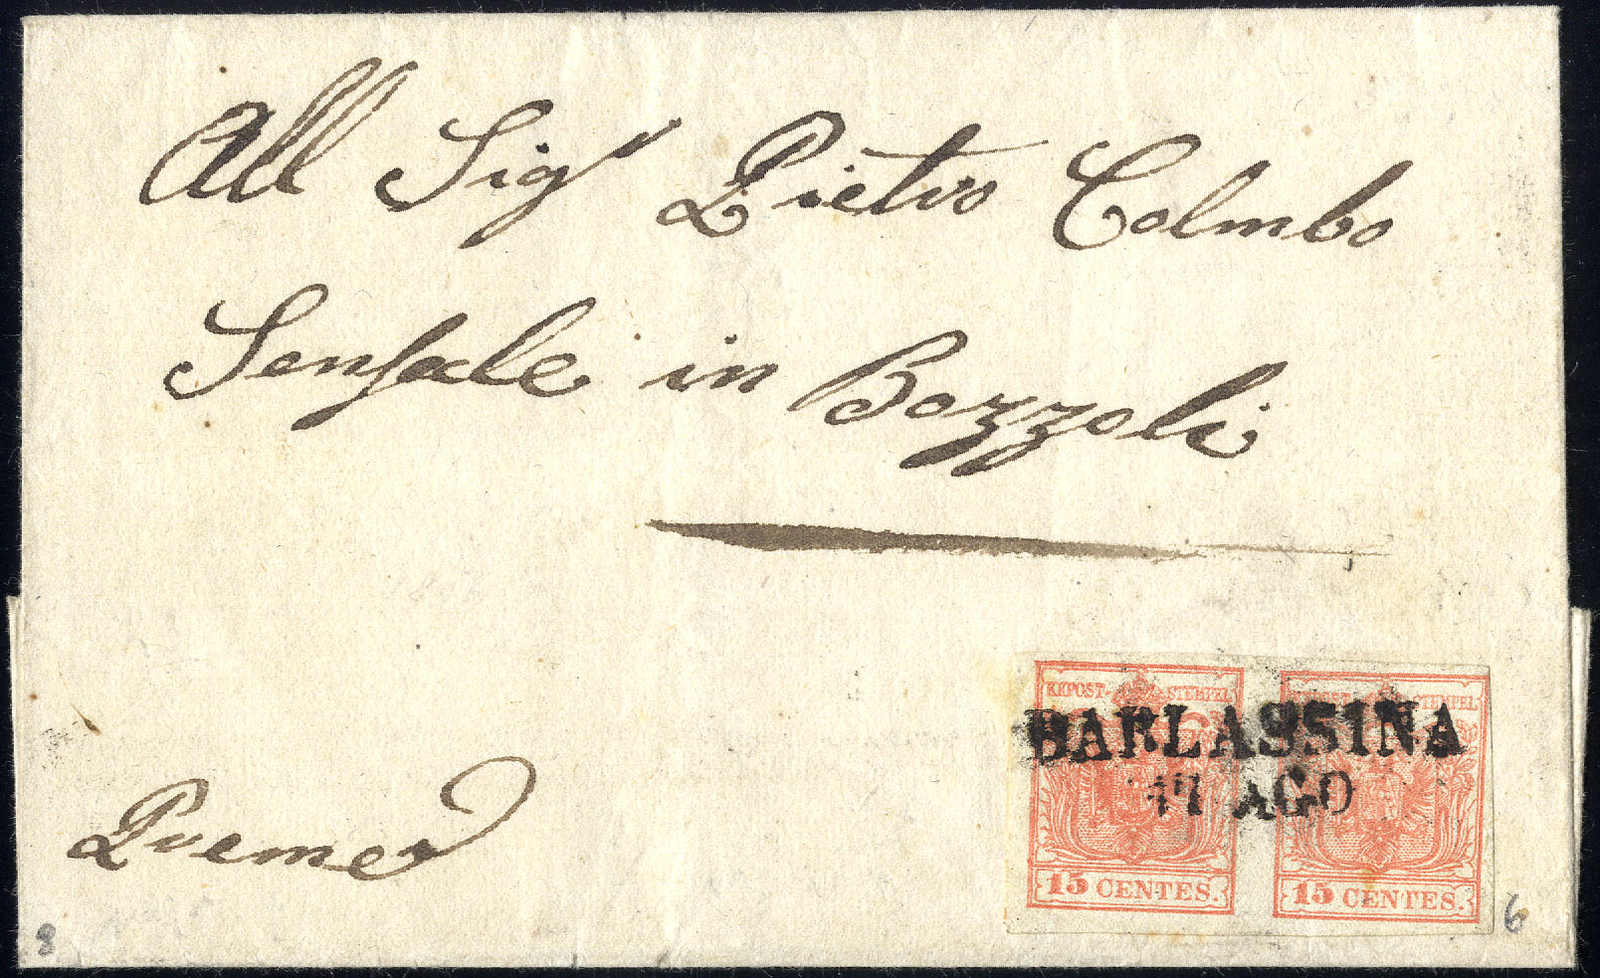 All Sigʳ Pietro Colmbo
Sensale in Bozzoli
Premer
KKPOST-STEMPEL
STEMPEL
BARLASSINA
17 AGO
15 CENTES.
15 CENTES.
8
6